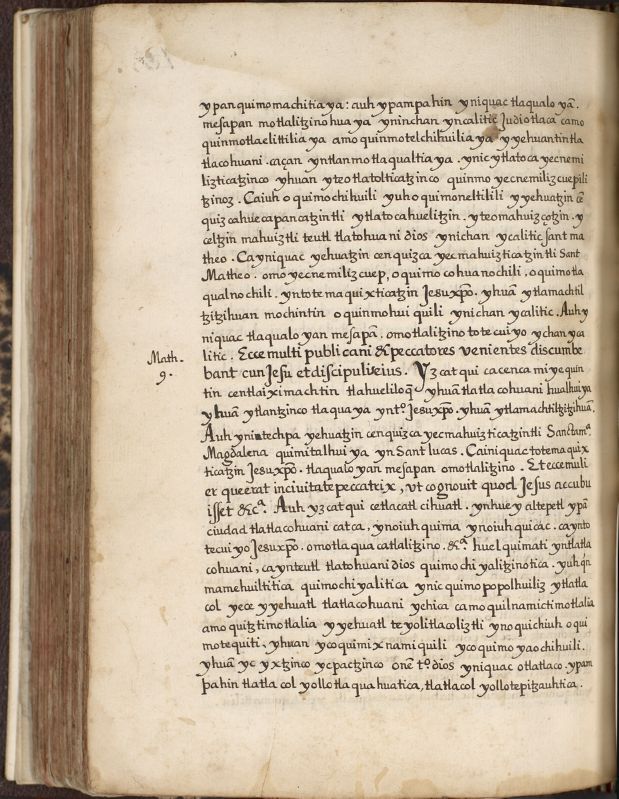 ypan quimomachitia ya: auh ypampa hin yniquac tlaqualo yã.
mesapan motlalitzino hua ya yninchan yncalitic Judiotlaca camo
quinmotlaelittilia ya amo quinmotelchihuilia ya yyehuantintla
tlacohuani. caçan yntlan motlaqualtia ya. ynic ytlatoca yecnemi
liztica tzinco yhuan yteotlatoltica tzinco quinmo yecnemiliz cuepili
tzinoz. Ca iuh oquimochihuili yuh oquimoneltilili yyehuatzin cẽ
quizcahuecapancatzintli ytlatocahuelitzin. yteomahuizçotzin. y
celtzin mahuiztli teutl tlatohuani dios ynichan ycalitic sant ma
theo. Ca yniquac yehuatzin cenquizca yecmahuizticatzintli Sant
Matheo. omoyecnemilizcuep, oquimocohuanochili. oquimotla
qualnochili. yntotemaquixticatzin Jesuxpõ. yhuã ytlamachtil
tzitzihuan mochintin oquinmohuiquili ynichan ycalitic. Auh y
niquac tlaqualo yan mesapã. omotlalitzino totecuiyo ychan yca
litic. Ecce multi publicani & peccatores venientes discumbe
Math.
9.
bant cun Jesu et discipulis eius. Yz catqui ca cenca miyequin
tin centlaiximachtin tlahueliloq̃ yhuã tlatlacohuani hualhuiya
yhuã ytlantzinco tlaqua ya ynto. Jesuxpõ. yhuã ytlamachtiltzitzihuã.
Auh ynintechpa yehuatzin cenquizca yecmahuizticatzintli Sanctama
Magdalena quimitalhui ya yn Sant lucas. Ca iniquac totemaquix
ticatzin Jesuxpõ. tlaqualo yan mesapan omotlalitzino. Et ecce muli
er que erat in ciuitate peccatrix, vt cognouit quod Jesus accubu
isset &ca. Auh yz catqui cetlacatl cihuatl. ynhuey altepetl ypã
ciudad tlatlacohuani catca, ynoiuh quima ynoiuh quicac. ca ynto
tecuiyo Jesuxpõ. omotlaqua catlalitzino. &a. huel quimati yntlatla
cohuani, ca ynteutl tlatohuani dios quimochiyalitzinotica. yuh q̃n
mamehuiltitica quimochiyalitica ynic quimopopolhuiliz ytlatla
col yece yyehuatl tlatlacohuani yehica camo quilnamictimotlalia
amo quitztimotlalia yyehuatl teyolitlacoliztli ynoquichiuh oqui
motequiti, yhuan ycoquimixnamiquili ycoquimoyaochihuili.
yhuã yc yxtzinco ycpactzinco onẽ to dios yniquac otlatlaco. ypam
pa hin tlatlacol yollotlaquahuatica, tlatlacol yollotepitzauhtica.